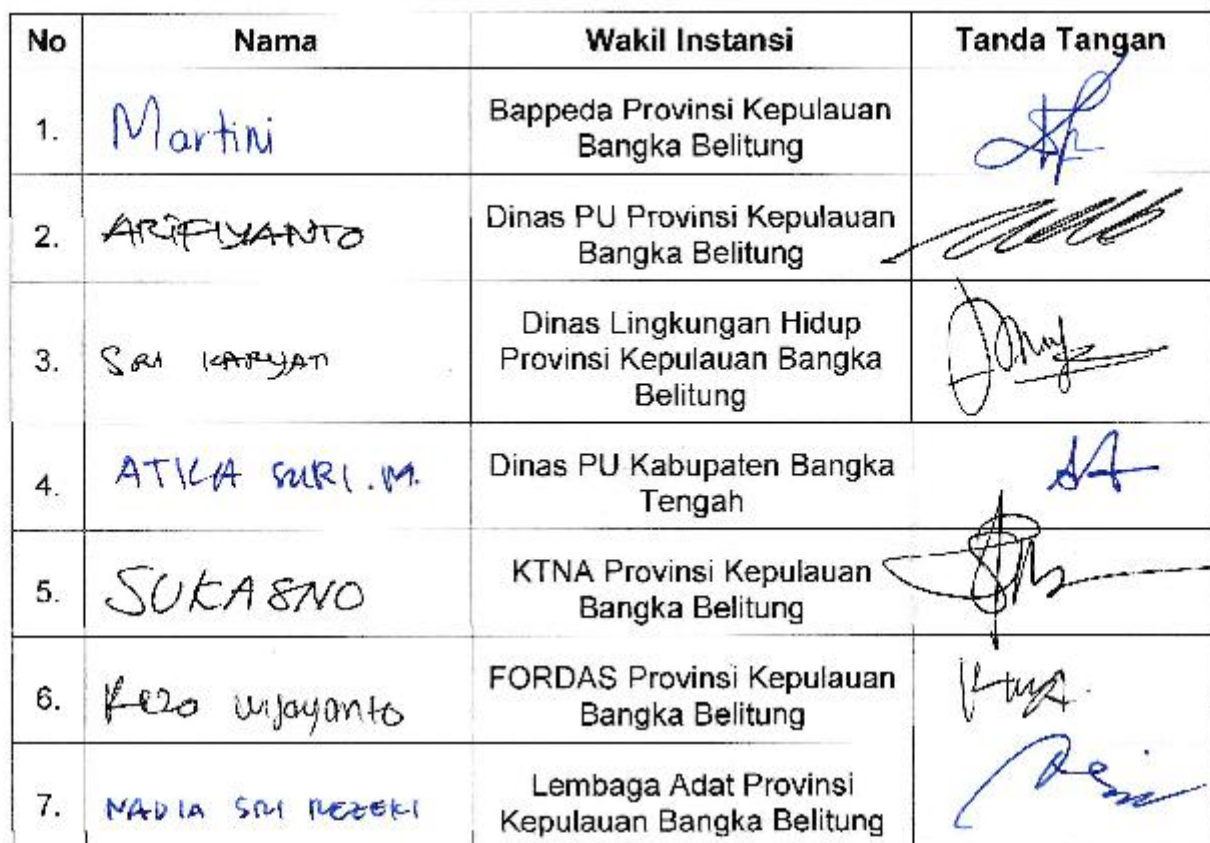 No Nama Wakil Instansi Tanda Tangan
1. Martini Bappeda Provinsi Kepulauan
Bangka Belitung
2. ARIFIYANTO Dinas PU Provinsi Kepulauan
Bangka Belitung
3. SRI KARYATI Dinas Lingkungan Hidup
Provinsi Kepulauan Bangka
Belitung
4. ATIKA SURI.M. Dinas PU Kabupaten Bangka
Tengah
5. SUKASNO KTNA Provinsi Kepulauan
Bangka Belitung
6. wijayanto FORDAS Provinsi Kepulauan
Bangka Belitung
7. NADIA SRI REZEKI Lembaga Adat Provinsi
Kepulauan Bangka Belitung